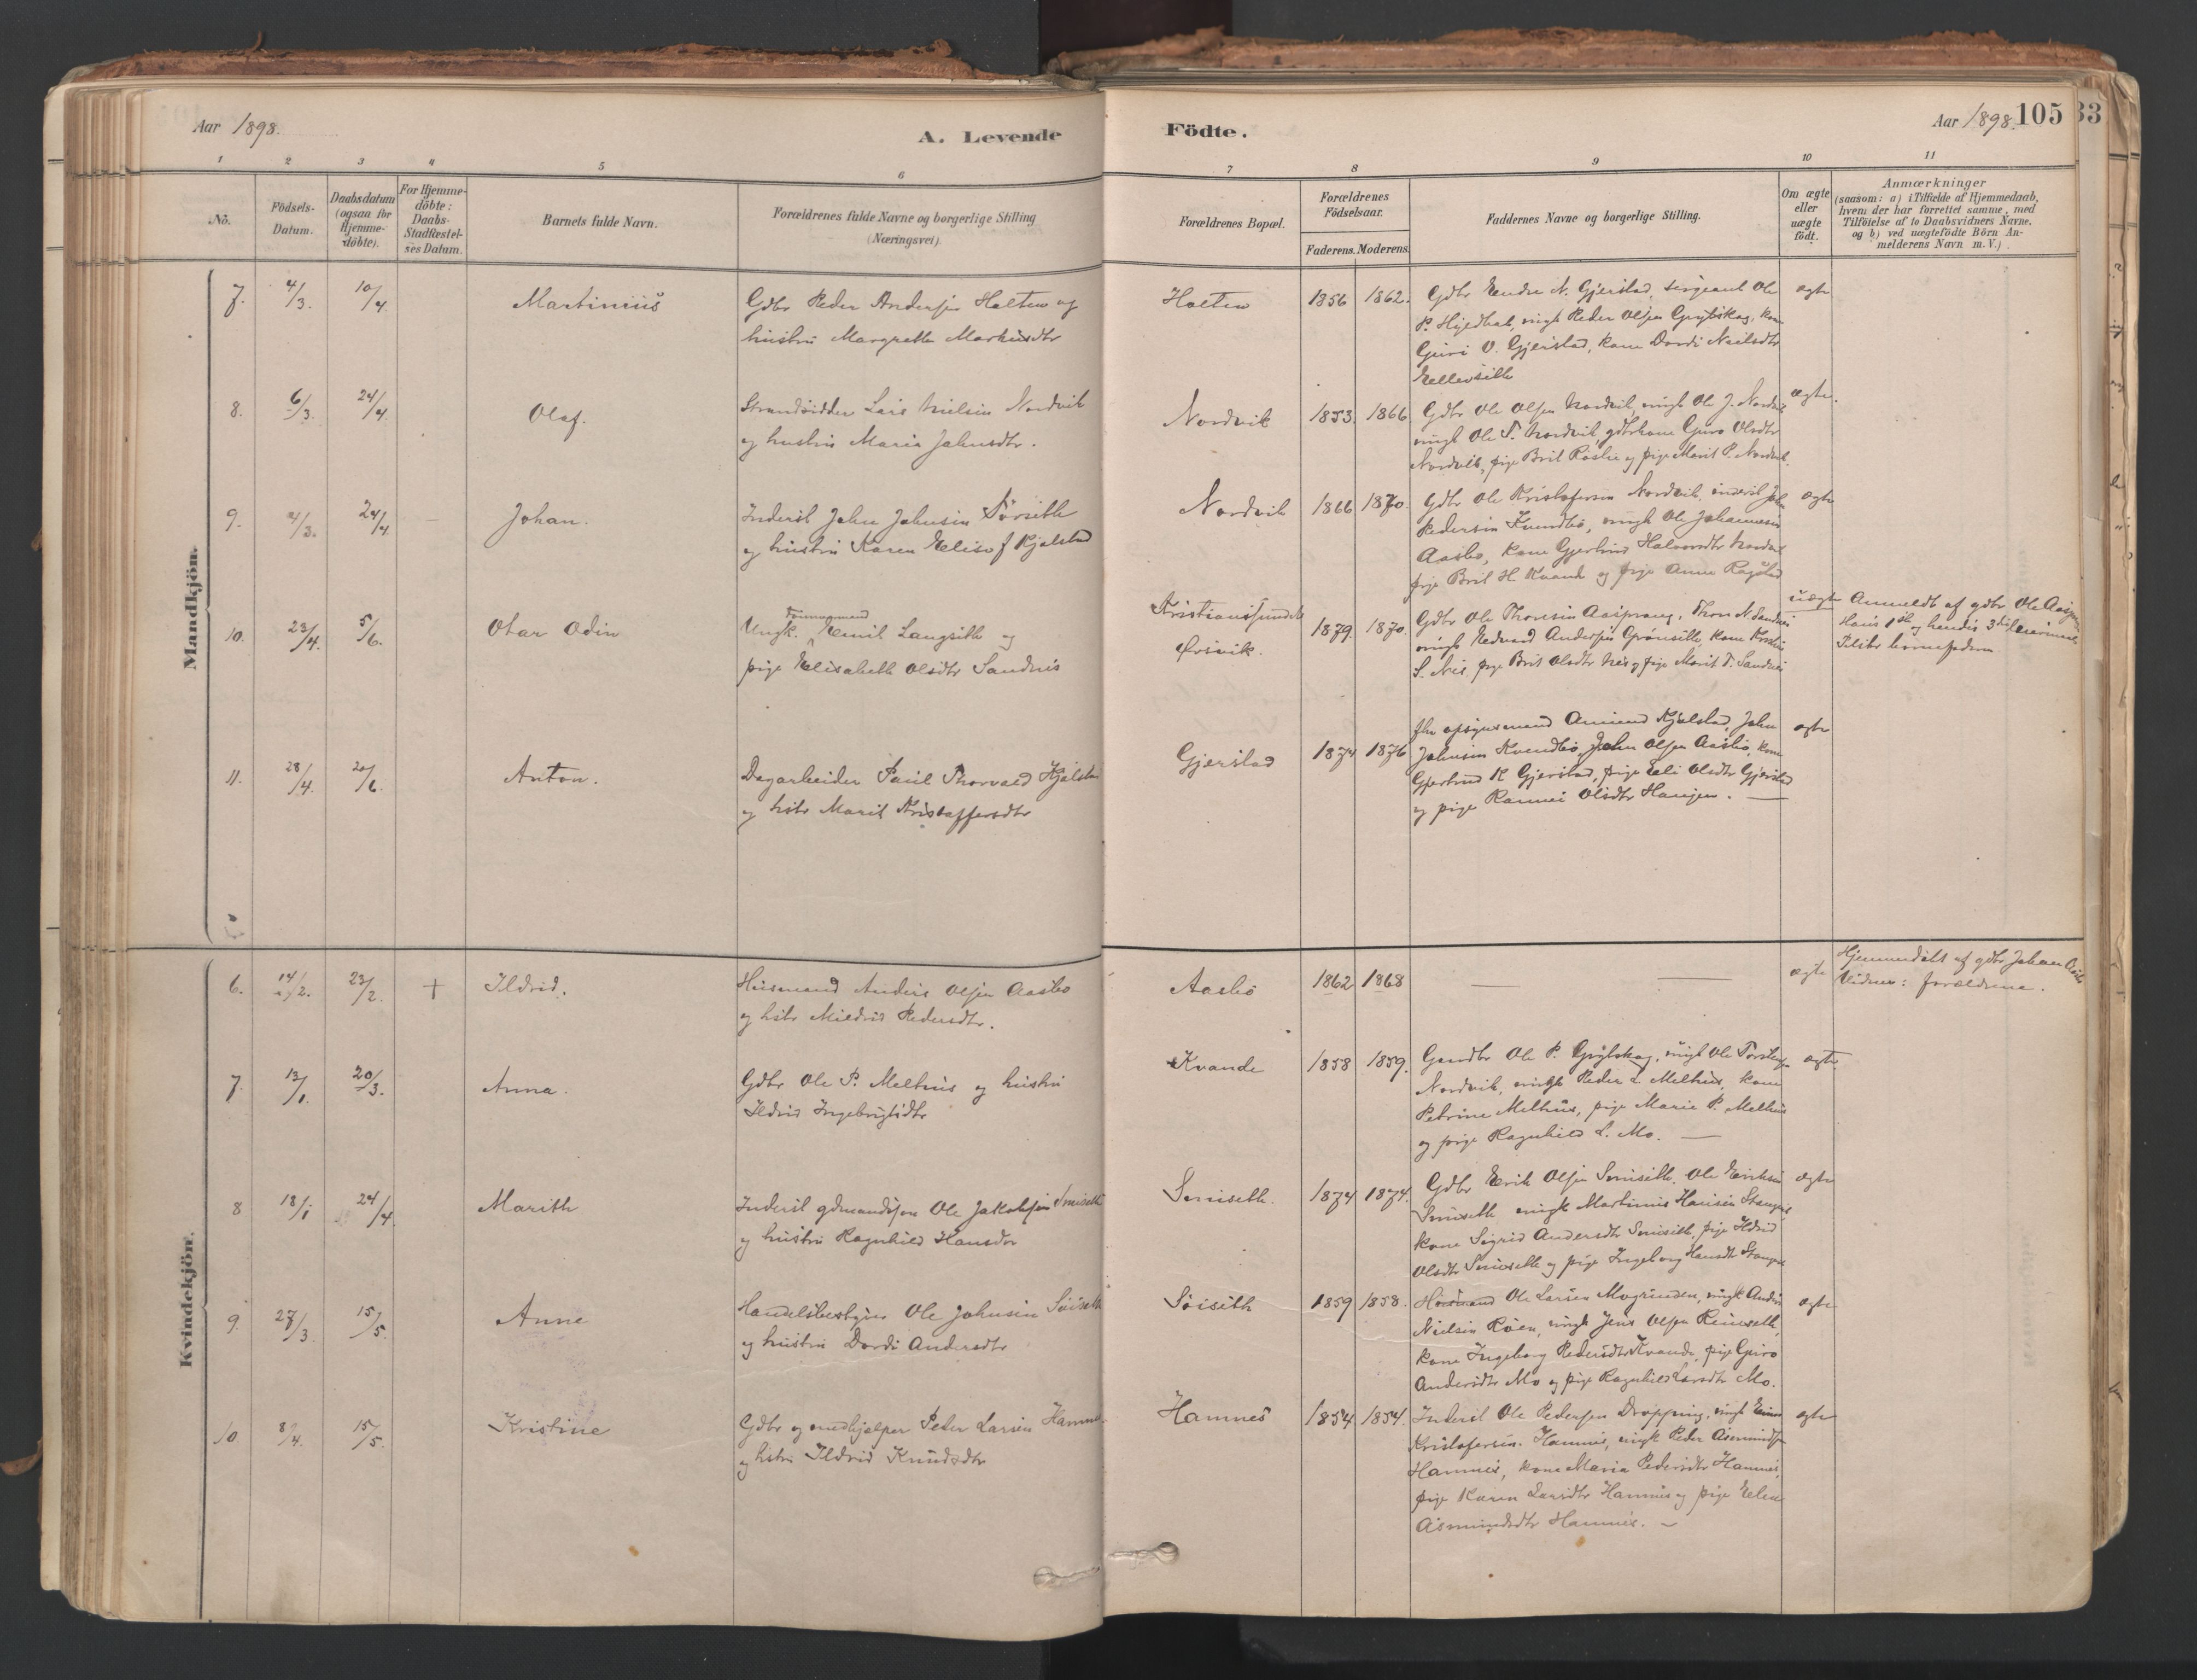 Aar 1898.
A. Levende
Födte.
Aar 1898. 105 33
1 2 3 4 5 6 7 8 9 10 11
No.
Födsels-
Datum.
Daabsdatum
(ogsaa for
Hjemme-
döbte).
For Hjemme-
döbte:
Daabs-
Stadfæstel-
ses Datum.
Barnets fulde Navn.
Forældrenes fulde Navne og borgerlige Stilling
(Næringsvei).
Forældrenes Bopæl.
Forældrenes
Födselsaar.
Faderens. Moderens.
Faddernes Navne og borgerlige Stilling.
Om ægte
eller
uægte
födt.
Anmærkninger
(saasom: a) i Tilfælde af Hjemmedaab,
hvem der har forrettet samme, med
Tilföielse af to Daabsvidners Navne.
og b) ved uægtefödte Börn An-
melderens Navn m.V.).
Mandkjön.
7. 4/3. 10/4 Martinius
Gdbr Peder Andersen Holten og
hustru Margrethe Markusdtr
Holten 1856 1862.
Gdbr Endre N. Gjerstad, sergeant Ole
P. , ungk Peder Olsen Grytskog, kone
Guri O. Gjerstad, kone Dordi Neilsdtr
ægte
8. 6/3. 24/4. Olaf.
Strandsidder Lars Nielsen Nordvik
og hustru Maria Johnsdtr.
Nordvik 1853. 1866
Gdbr Ole Olsen Nordvik, ungk Ole J. Nordvik
ungk Ole T. Nordvik, gdbrkone Guro Olsdtr
Nordvik, pige Brit og pige Marit P. Nordvik.
ægte.
9. 4/3. 24/4 — Johan.
Inderst John Johnsen
og hustru Karen Elisef Kjelstad
Nordvik 1866 1870.
Gdbr Ole Kristofersen Nordvik, inderst John
Pedersen Kvendbö, ungk Ole Johannesen
Aasbö, kone Gjertrud Halvordtr Nordvik
pige Brit H. Kvande og pige Anne
ægte
10. 23/4. 5/6. Otar Odin
Ungk. Emil Langseth og
pige Elisabeth Olsdtr Sandnes
Kristianssund
Örsvik. 1879. 1870.
Gdbr Ole Thoresen Aasprong, Thore N. Sandnes
ungk Edvard Andersen Grönseth, kone
S. Nes, pige Brit Olsdtr Nes og pige Marit T. Sandnes
uægte
Anmeldt af gdbr Ole
Hans 1ste og hendes 3die leiermaal
11. 28/4. 20/6. Anton.
Dagarbeider Paul Thorvald Kjelstad
og hstr Marit Kristoffersdtr
Gjerstad 1874 1876
Amund Kjelstad, John
Johnsen Kvendbö, John Olsen Aasbö, kone
Gjertrud K Gjerstad, pige Eli Olsdtr Gjerstad
og pige Rannei Olsdtr Haugen. —
ægte
Kvindekjön.
6. 14/2. 23/2. + Ildrid.
Husmand Anders Olsen Aasbö
og hstr Mildrid Pedersdtr.
Aasbö 1862 1868 — —
ægte
Hjemmedöbt af gdbr Johan Aasbö
Vidner: forældrene.
7. 13/1. 20/3. Anna.
Gdbr Ole P. Melhus og hustru
Ildrid Ingebrigtsdtr
Kvande 1858 1859.
Gaardbr Ole P. Grytskog, ungk Ole Torstensen
Nordvik, ungk Peder L. Melhus, kone
Petrine Melhus, pige Marie P. Melhus
og pige Ragnhild L. Mo. —
ægte
8 18/1 24/4. Marith
Inderst gdmandssön Ole Jakobsen Smiseth
og hustru Ragnhild Hansdtr
Smiseth. 1874 1874.
Gdbr Erik Olsen Smiseth, Ole Eriksen
Smiseth, ungk Martinus Hansen
kone Sigrid Andersdtr Smiseth, pige Ildrid
Olsdtr Smiseth og pige Ingeborg Hansdtr
ægte
9. 27/3. 15/5. Anne
Handelsbestyrer Ole Johnsen Söiseth
og hustru Dordi Andersdtr
Söiseth 1859 1858.
Husmand Ole Larsen Mogrenden, ungk Anders
Nielsen Röen, ungk Jens Olsen
kone Ingeborg Pedersdtr Kvande, pige Guro
Andersdtr Mo og pige Ragnhild Larsdtr Mo.
ægte
10 8/4. 15/5. Kristine
Gdbr og medhjelper Peder Larsen Hamnes
og hstr Ildrid Knudsdtr
Hamnes 1854 1854.
Inderst Ole Pedersen Dröpping, ungk
Kristofersen Hamnes, ungk Peder Asmundsen
Hamnes, kone Maria Pedersdtr Hamnes,
pige Karen Larsdtr Hamnes og pige Elen
Asmundsdtr Hamnes. —
ægte